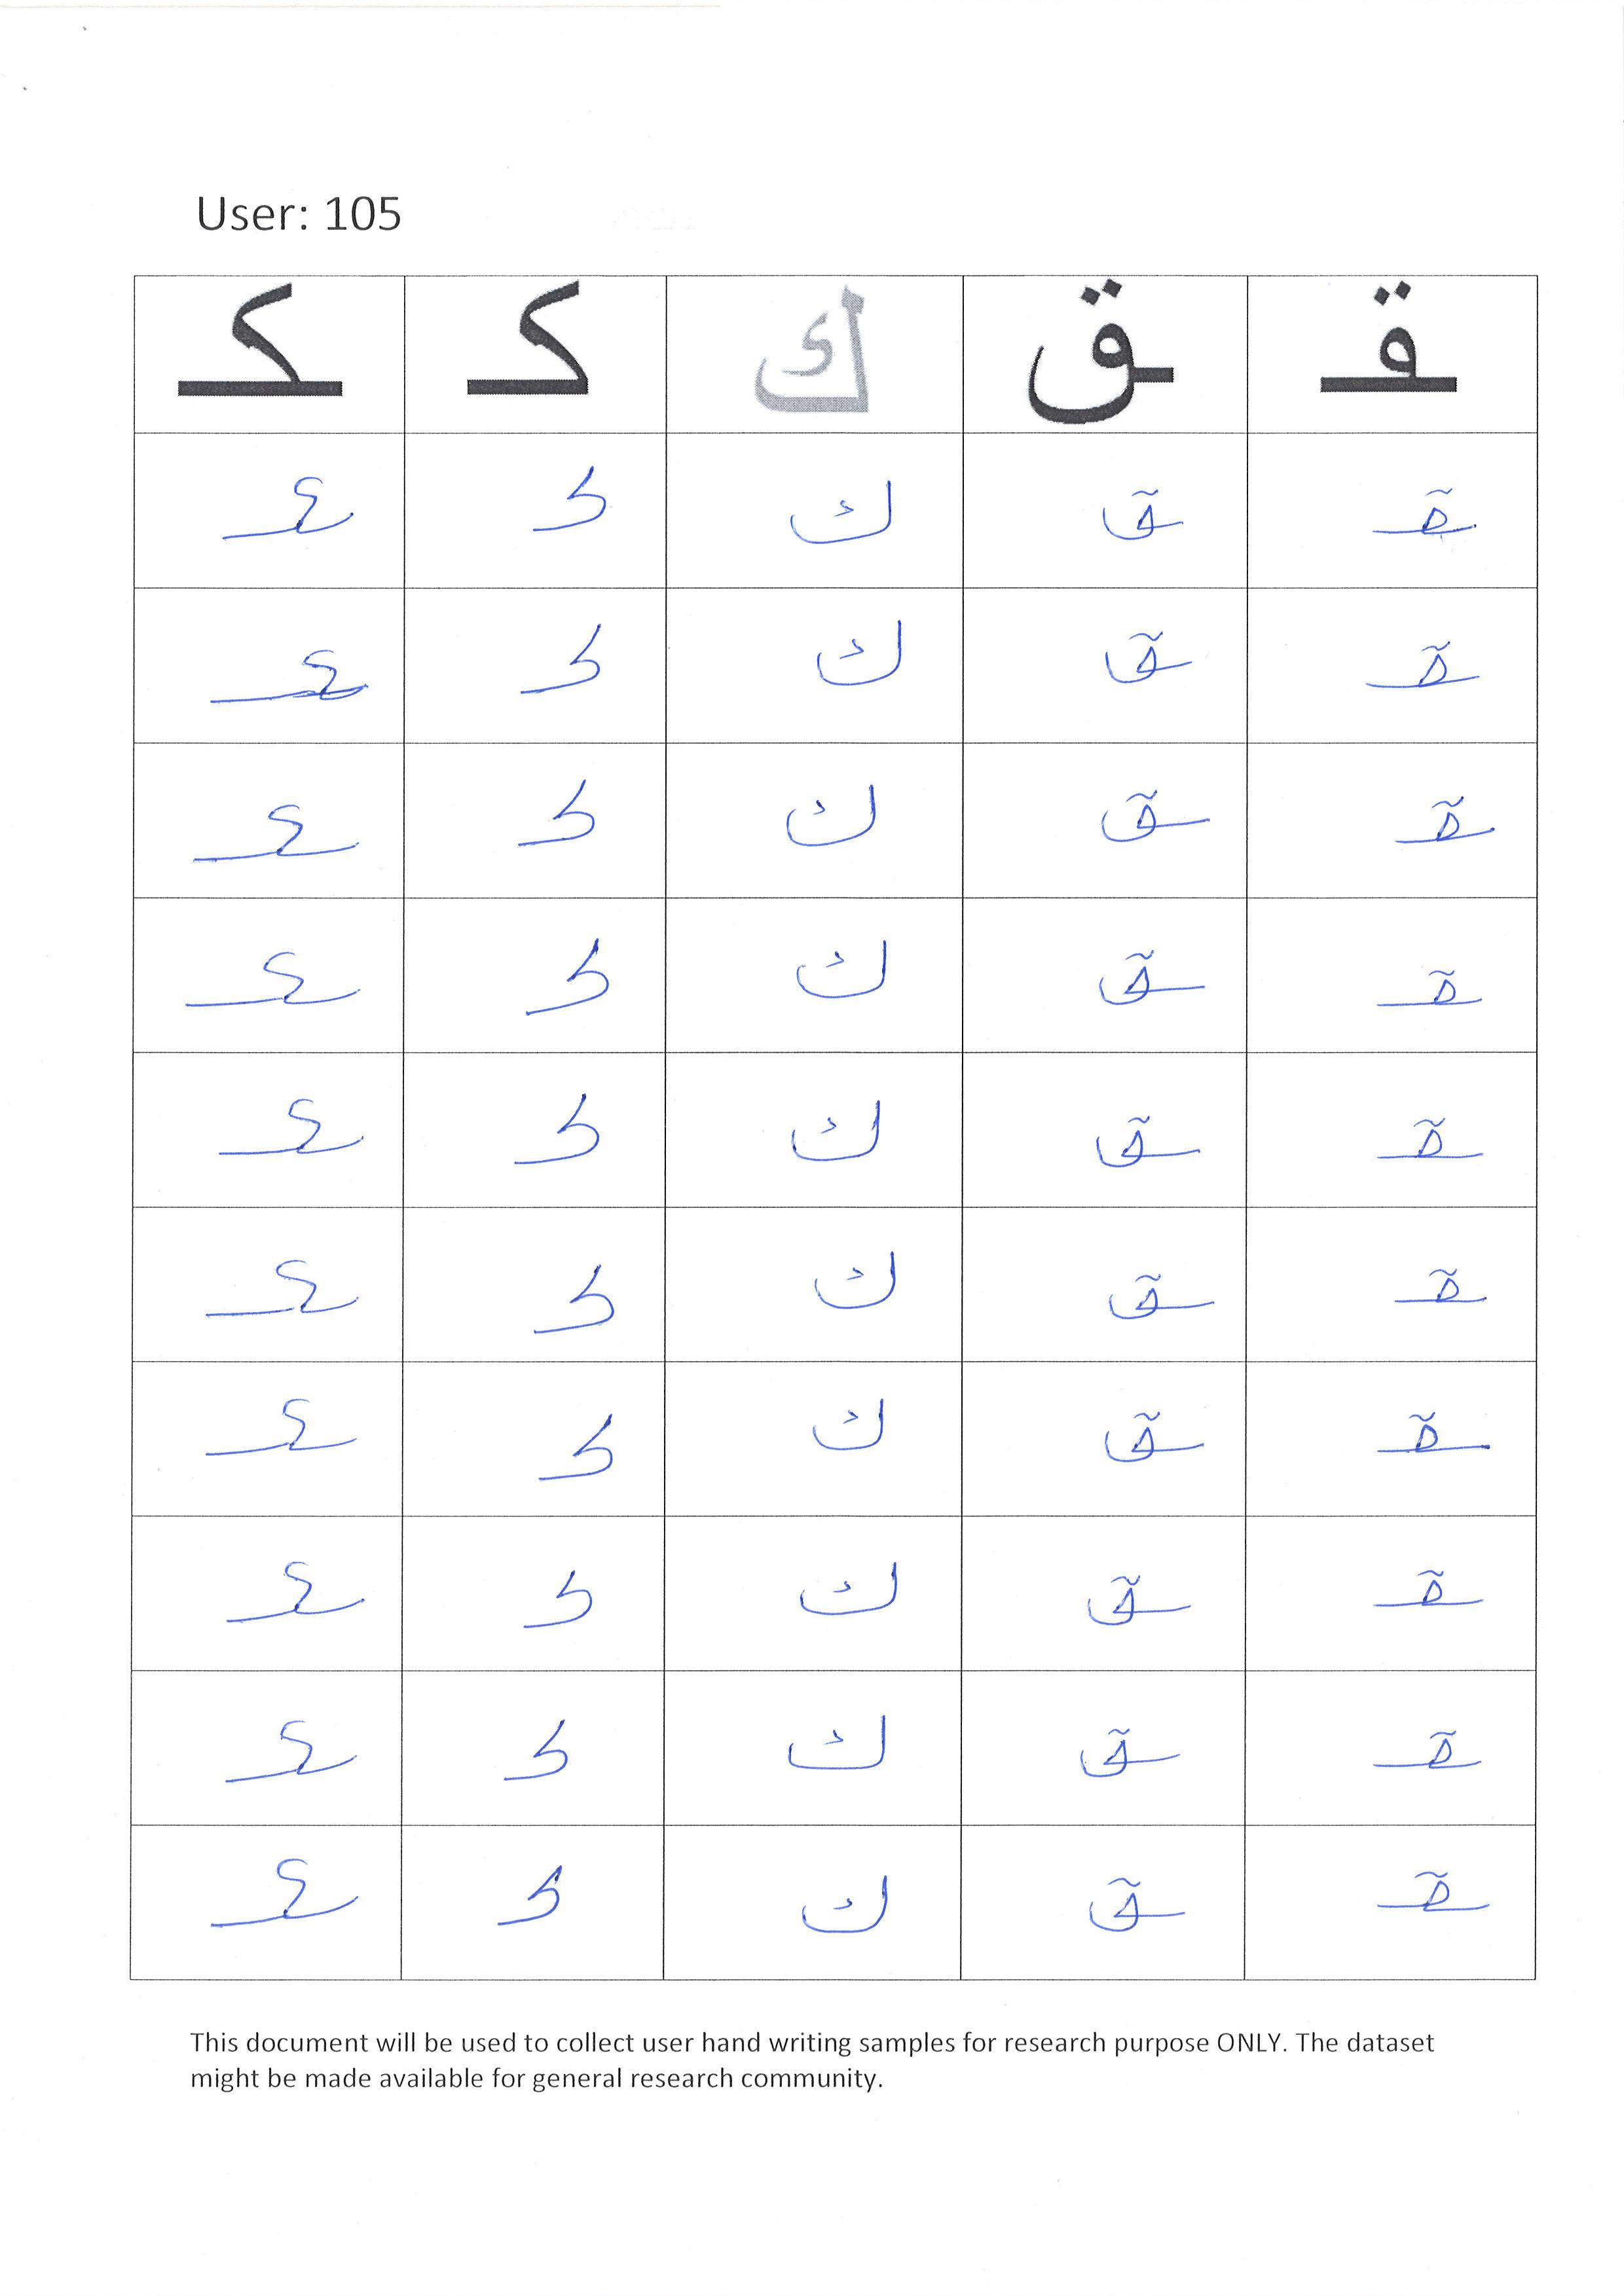 User: 105
ـكـ كـ ك ـق ـقـ
ـكـ كـ ك ـق ـقـ
ـكـ كـ ك ـق ـقـ
ـكـ كـ ك ـق ـقـ
ـكـ كـ ك ـق ـقـ
ـكـ كـ ك ـق ـقـ
ـكـ كـ ك ـق ـقـ
ـكـ كـ ك ـق ـقـ
ـكـ كـ ك ـق ـقـ
ـكـ كـ ك ـق ـقـ
ـكـ كـ ك ـق ـقـ
This document will be used to collect user hand writing samples for research purpose ONLY. The dataset
might be made available for general research community.